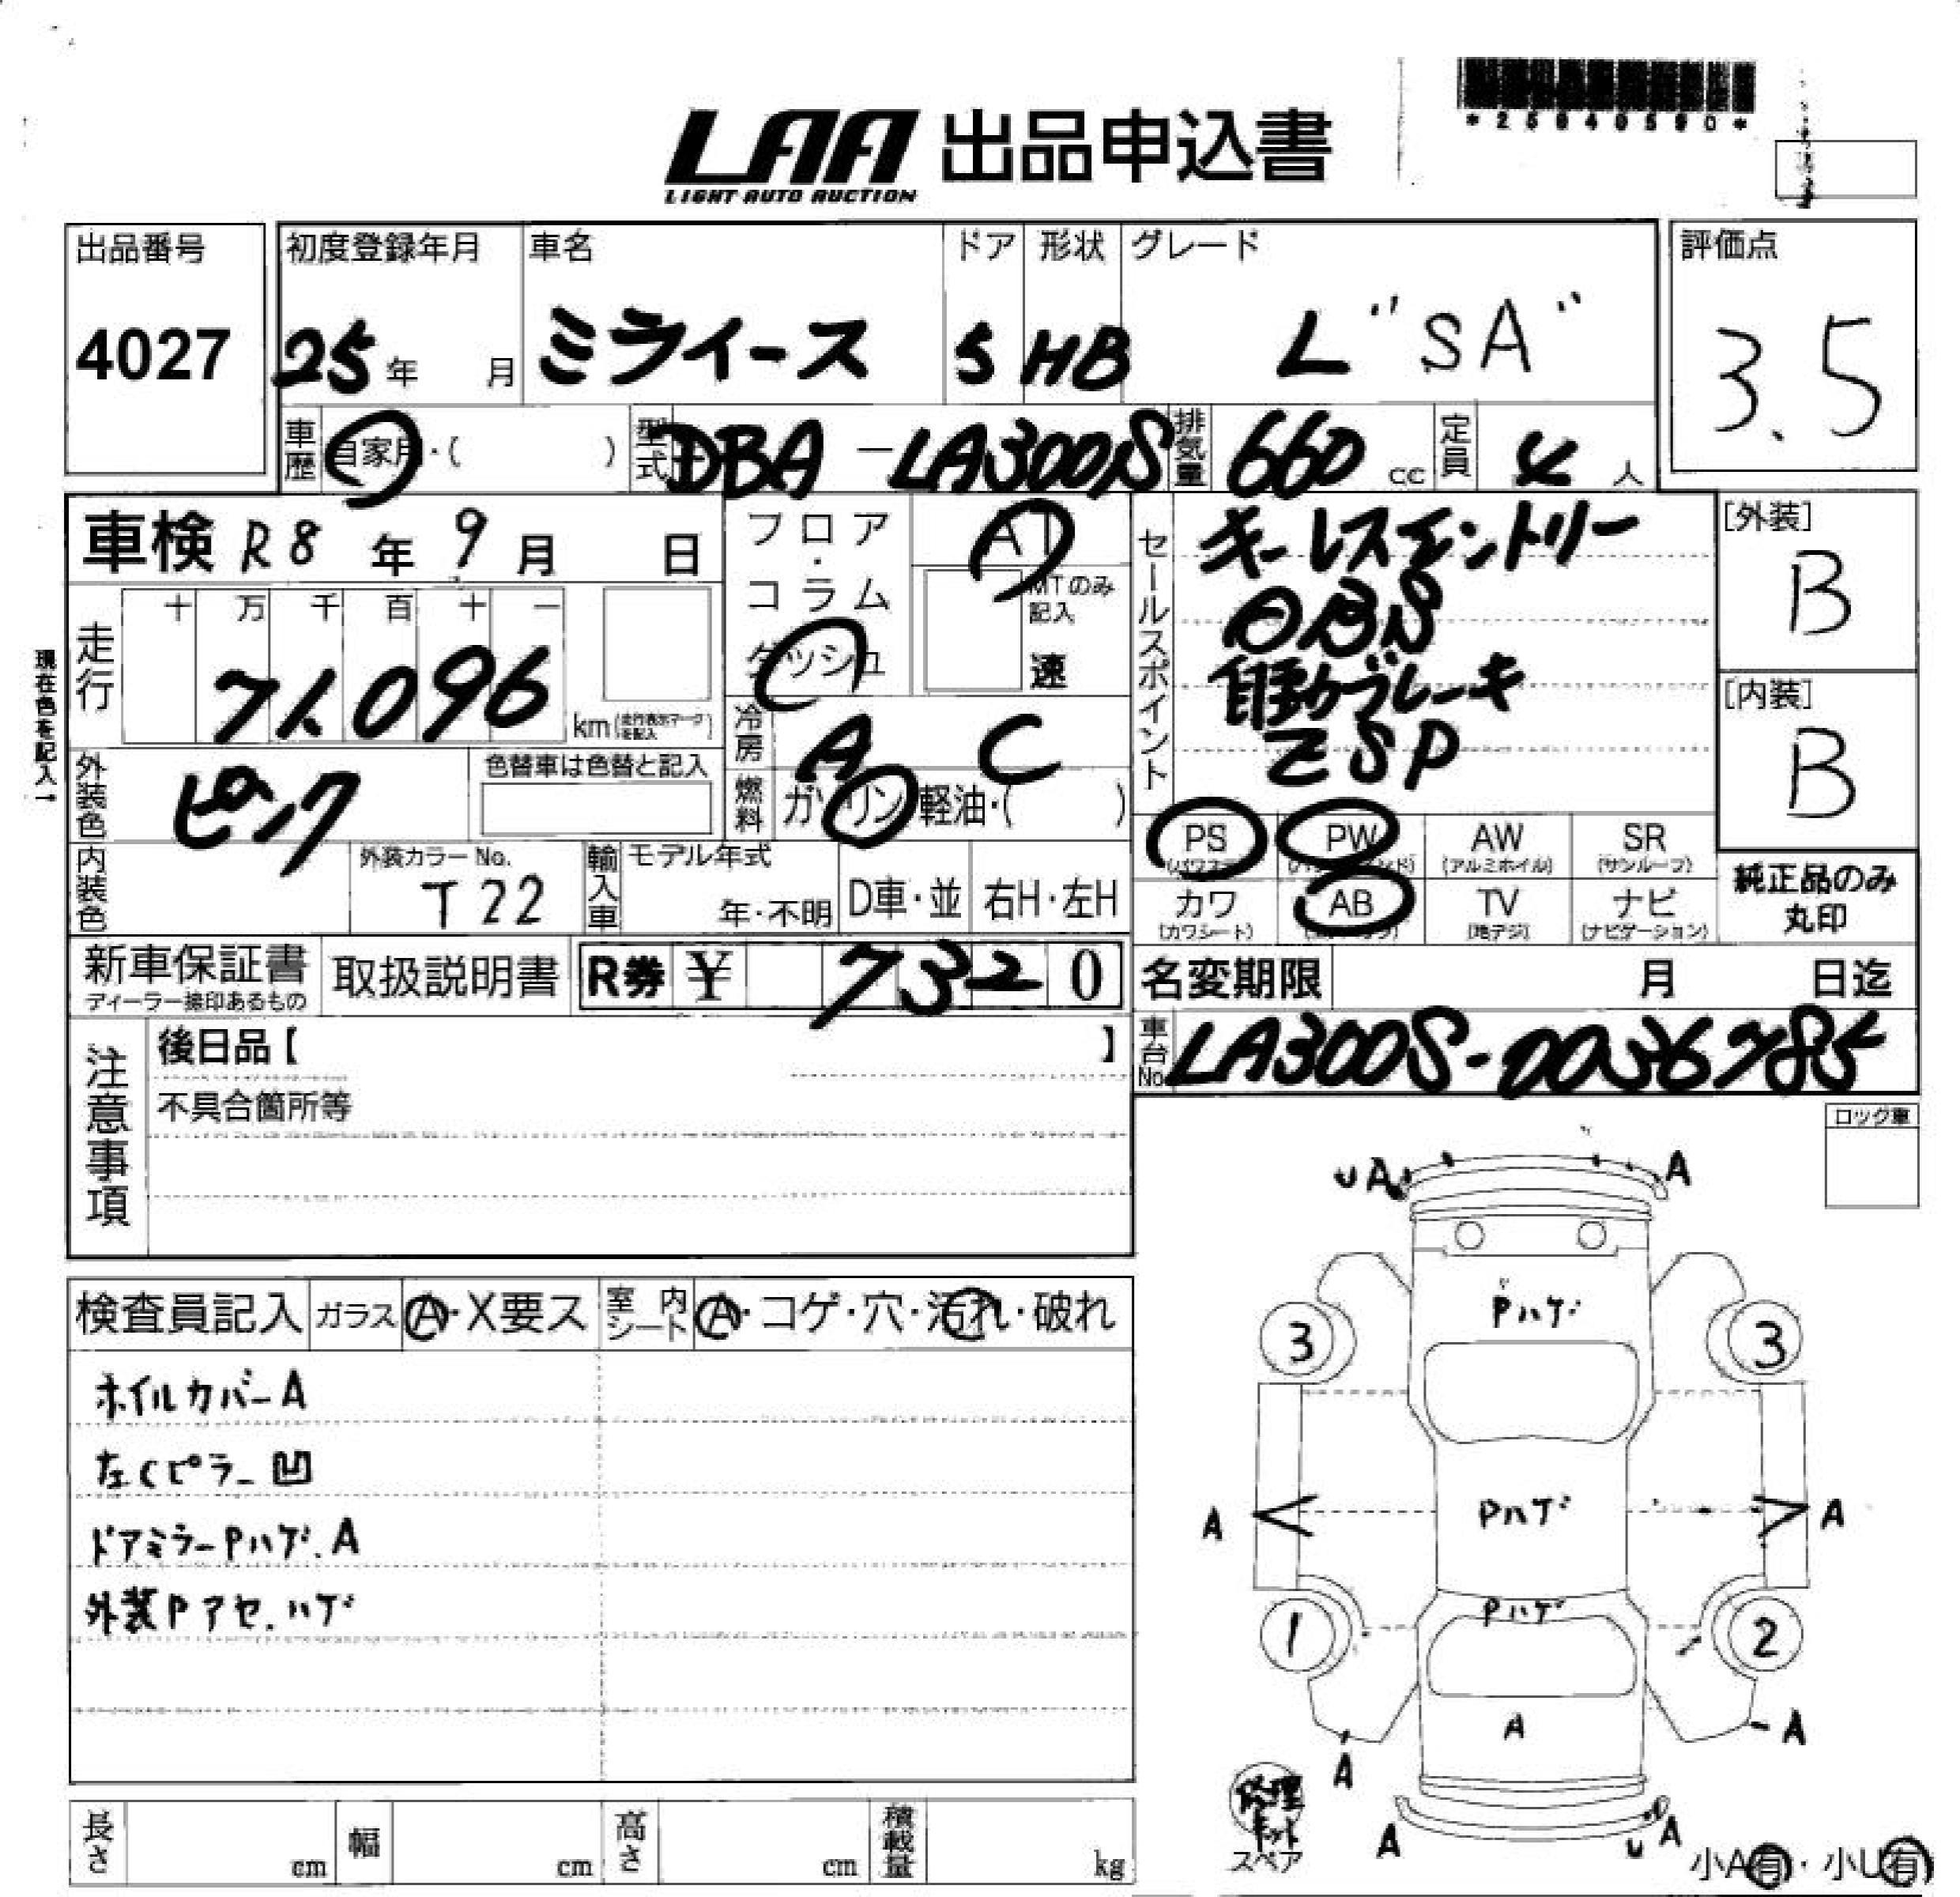 *25040590*
LAA 出品申込書
LIGHT AUTO AUCTION
出品番号 初度登録年月 車名 ドア 形状 グレード 評価点
4027 25年 月 ミライース 5 HB L "SA" 3.5
車歴 自家用・( ) 型式 DBA-LA300S 排気量 660 cc 定員 4 人
車検 R8年 9月 日 フロア・コラム ダッシュ AT セールスポイント キーレスエントリー [外装]
MTのみ記入 速 B
走行 十 万 千 百 十 一 ABS
71,096 km (走行表示マークを記入) 自動ブレーキ [内装]
現在色を記入→
冷房 A C ESP B
外装色 ピンク 色替車は色替と記入 燃料 ガソリン・軽油・( )
PS (パワステ) PW AW (アルミホイル) SR (サンルーフ)
内装色 外装カラーNo. T22 輸入車 モデル年式 年・不明 D車・並 右H・左H
カワ (カワシート) AB TV (地デジ) ナビ (ナビゲーション) 純正品のみ丸印
新車保証書 ディーラー捺印あるもの 取扱説明書 R券 ¥ 7320 名変期限 月 日迄
車台No. LA300S-0036785
注意事項 後日品【 】
不具合箇所等
ロック車
UA A
検査員記入 ガラス A・X要ス 室内シート A・コゲ・穴・汚れ・破れ
Pハゲ
3 3
ホイルカバーA
左Cピラー凹
A Pハゲ A
ドアミラーPハゲ.A
外装Pアセ.ハゲ
Pハゲ
1 2
A
A A
修理キット
スペア
A UA
長さ cm 幅 cm 高さ cm 積載量 kg
小A有・小U有